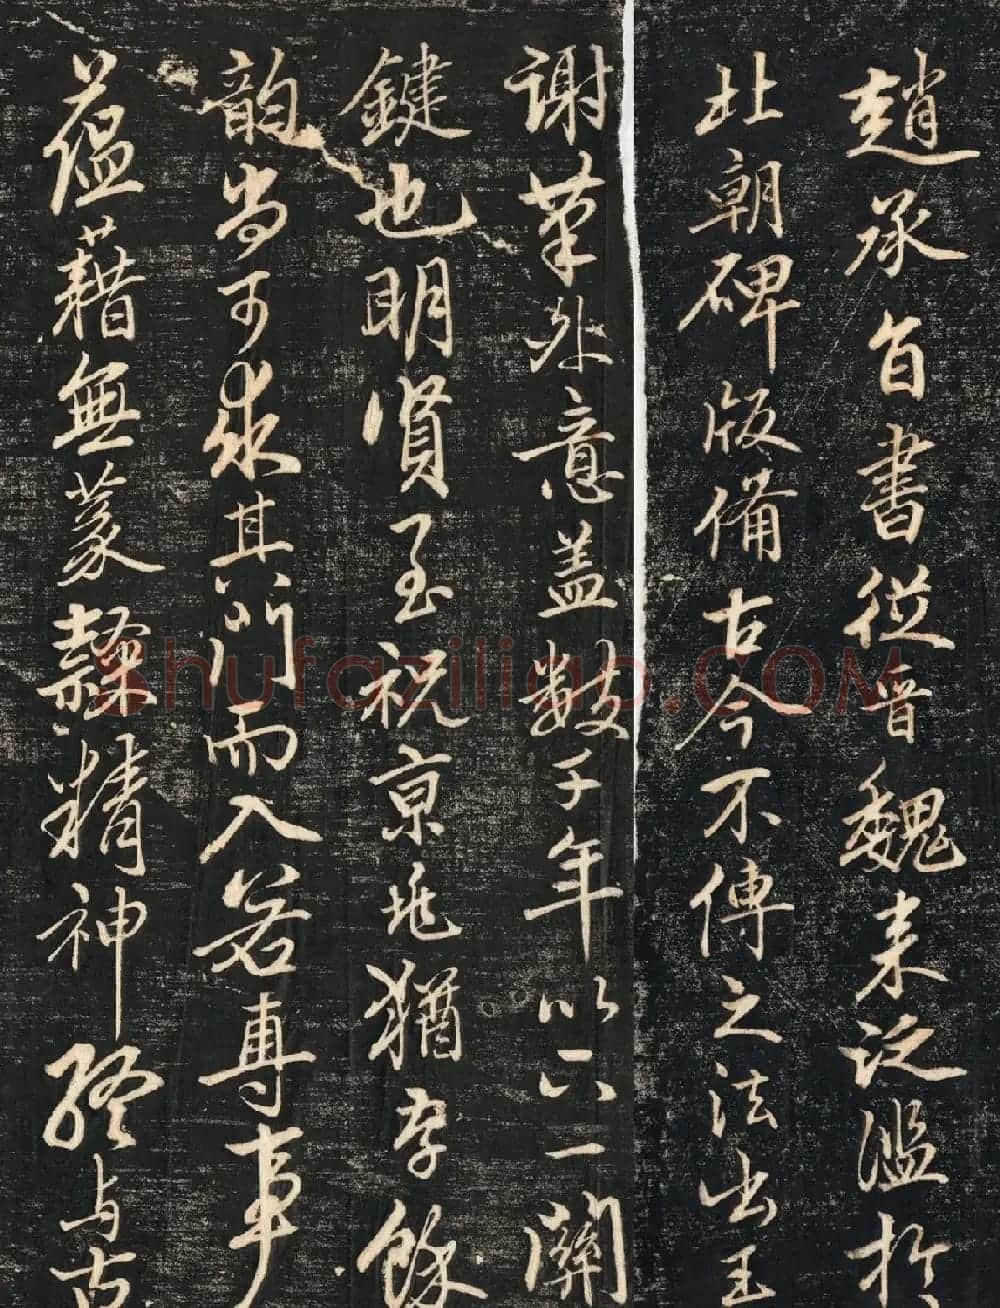 趙承旨書從晉魏来泛濫於
北朝碑版備古今不傳之法出王
謝筆外意盖數千年以一關
鍵也明賢至祝京兆猶存餘
韵尚可求其所而入若專事
蕴藉無篆隸精神終与古
Shufaziliao.COM